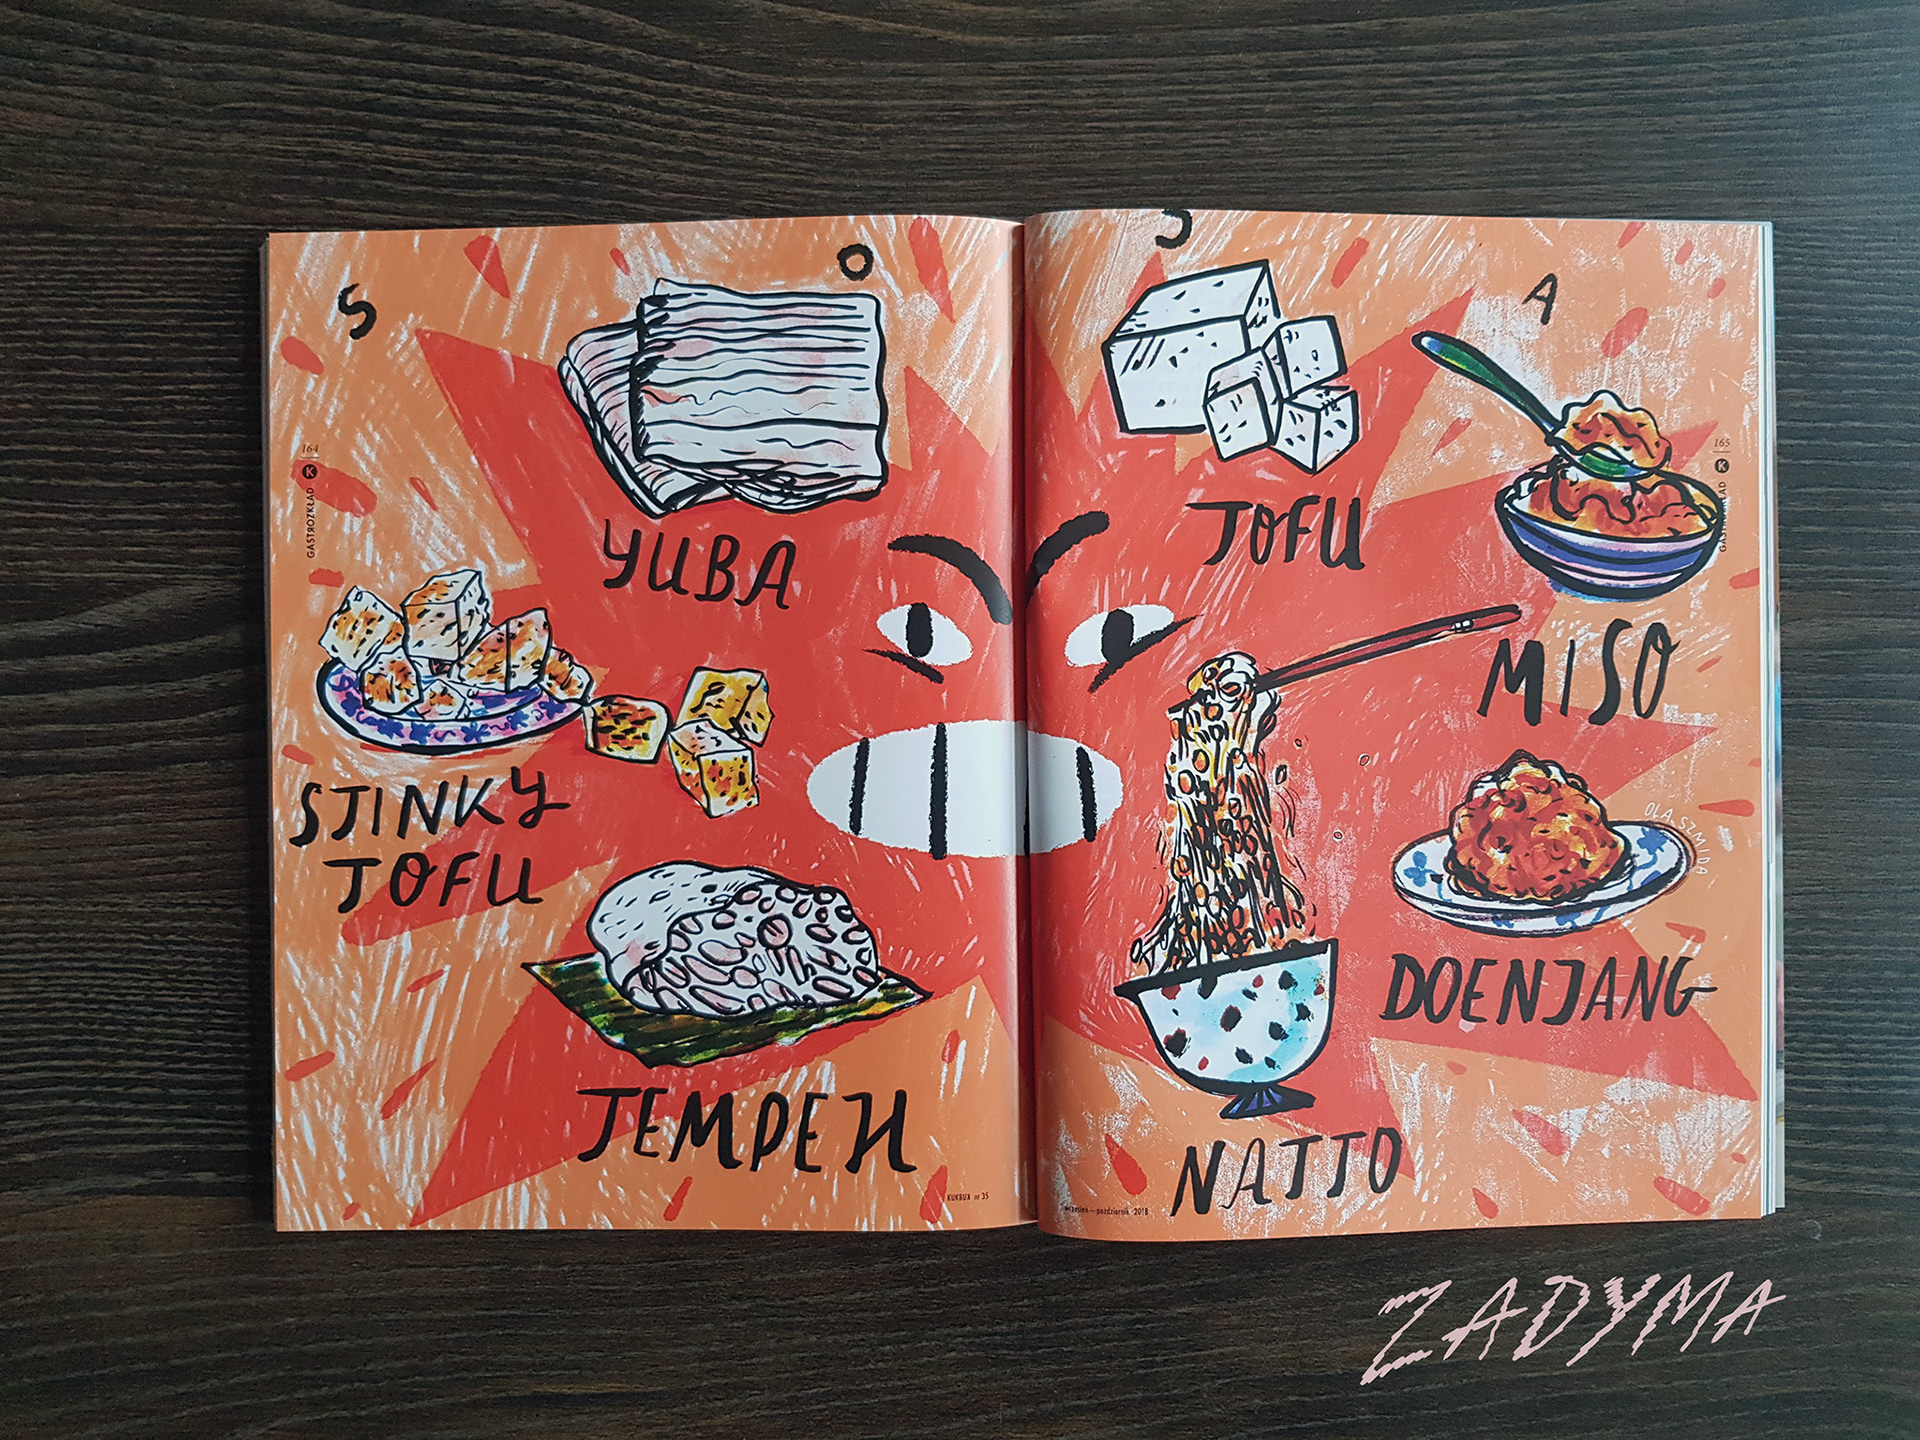 S O S A
YUBA
STINKY
TOFU
TEMPEH
164
K
GASTROZKŁAD
KUKBUK nr 35
TOFU
MISO
DOENJANG
NATTO
165
K
GASTROZKŁAD
OLA SZMIDA
wrzesień — październik 2018
ZADYMA